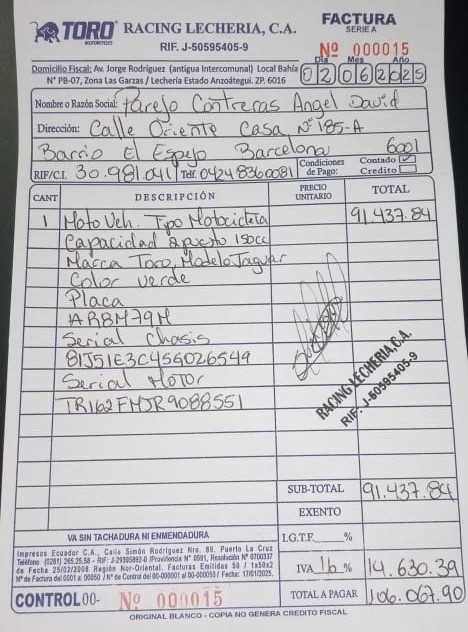 TORO
MOTORCYCLES
RACING LECHERIA, C.A.
RIF. J-50595405-9
FACTURA
SERIE A
Nº 000015
Domicilio Fiscal: Av. Jorge Rodríguez (antigua Intercomunal) Local Bahía
N° PB-07, Zona Las Garzas / Lechería Estado Anzoátegui. ZP. 6016
Dia Mes Año
02 06 2025
Nombre o Razón Social: Parejo Contreras Angel David
Dirección: Calle Oriente Casa N° 185-A
Barrio El Espejo Barcelona 6001
RIF/C.I. 30.981.041 Telf. 04248360081 Condiciones de Pago: Contado ☑ Credito ☐
CANT DESCRIPCIÓN PRECIO UNITARIO TOTAL
1 Moto Veh. Tipo Motocicleta 91.437.84
Capacidad 2 puesto 150cc
Marca Toro, Modelo Jaguar
Color verde
Placa
AR8M79M
Serial Chasis
81J51E3C4SG026549
Serial Motor
TR162FMJR9088551
RACING LECHERIA, C.A.
RIF: J-50595405-9
SUB-TOTAL 91.437.84
EXENTO
I.G.T.F. %
IVA 16 % 14.630.39
TOTAL A PAGAR 106.067.90
VA SIN TACHADURA NI ENMENDADURA
Impresos Ecuador C.A., Calle Simón Rodríguez Nro. 89. Puerto La Cruz
Teléfono (0281) 265.25.58 - RIF: J-29395892-0 /Providencia N° 0591, Resolución Nº 0700337
de Fecha 25/02/2008 Región Nor-Oriental. Facturas Emitidas 50 / 1x50x2
N° de Factura del 0001 al 00050 / N° de Control del 00-000001 al 00-000050 / Fecha: 17/01/2025.
CONTROL 00- Nº 000015
ORIGINAL BLANCO - COPIA NO GENERA CREDITO FISCAL